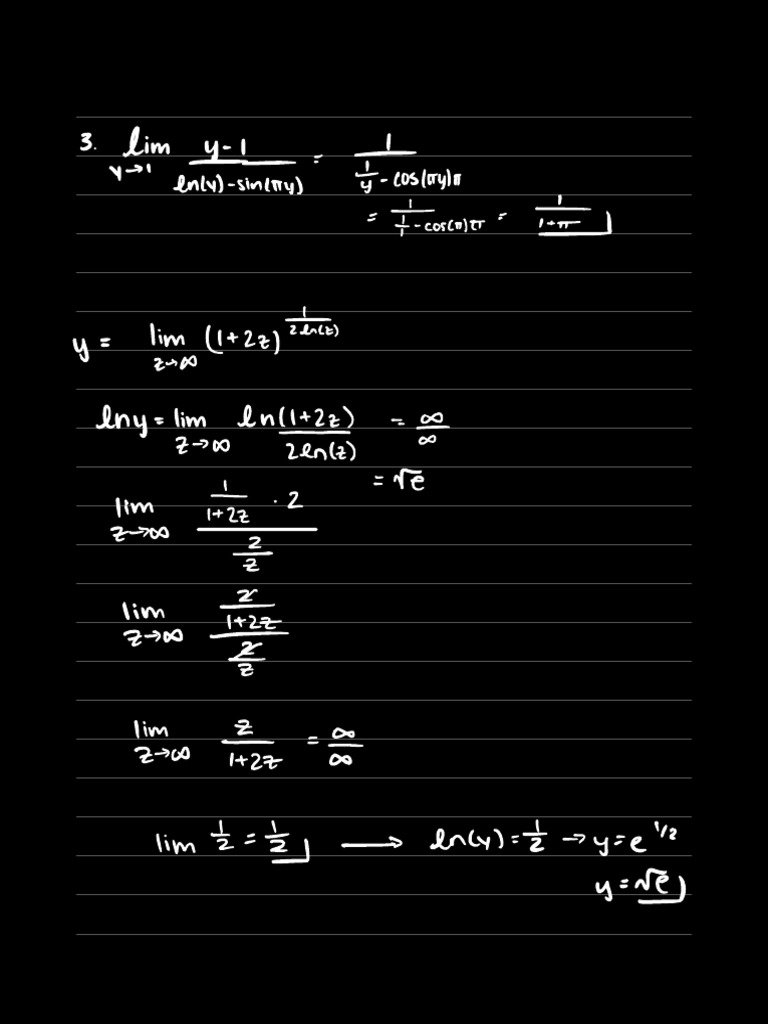 3. lim y→1 (y-1)/(ln(y)-sin(πy)) = 1/(1/y - cos(πy)π)
= 1/(1/1 - cos(π)π) = 1/(1+π)
y = lim z→∞ (1+2z)^(1/(2ln(z)))
lny = lim z→∞ ln(1+2z)/(2ln(z)) = ∞/∞
= √e
lim z→∞ (1/(1+2z) · 2)/(2/z)
lim z→∞ (2/(1+2z))/(2/z)
lim z→∞ z/(1+2z) = ∞/∞
lim 1/2 = 1/2 → ln(y) = 1/2 → y = e^(1/2)
y = √e